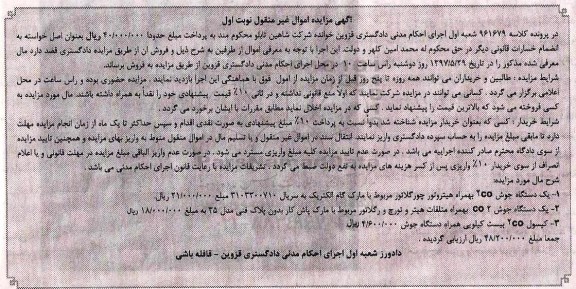 آگهی مزایده اموال غیر منقول نوبت اول
در پرونده کلاسه ۹۶۱۶۷۹ شعبه اول اجرای احکام مدنی دادگستری قزوین خوانده شرکت شاهین تابلو محکوم مند به پرداخت مبلغ حدودا ۴۰/۰۰۰/۰۰۰ ریال بعنوان اصل خواسته به
انضمام خسارات قانونی دیگر در حق محکوم له محمد امین کلهر و دولت. این اجرا با توجه به معرفی اموال از طرفین به شرح ذیل و فروش آن از طریق مزایده دادگستری قصد دارد مال
معرفی شده مذکور را در تاریخ ۱۳۹۷/۵/۲۹ روز دوشنبه راس ساعت ۱۰ در محل اجرای احکام مدنی دادگستری قزوین از طریق مزایده به فروش برساند.
شرایط مزایده : طالبین و خریداران می توانند همه روزه تا پنج روز قبل از زمان مزایده از اموال فوق با هماهنگی این اجرا بازدید نمایند . مزایده حضوری بوده و راس ساعت در محل
اعلامی برگزار می گردد . کسانی می توانند در مزایده شرکت نمایند که اولا منع قانونی نداشته و در ثانی ۱۰٪ قیمت پیشنهادی خود را نقداً به همراه داشته باشند. مال مورد مزایده به
کسی فروخته می شود که بالاترین قیمت را پیشنهاد نماید . کسی که در مزایده اخلال نماید مطابق مقررات با ایشان برخورد می گردد .
شرایط خریدار : کسی که بعنوان خریدار مزایده شناخته شد بدوا نسبت به پرداخت ۱۰٪ مبلغ پیشنهادی به صورت نقدی اقدام و سپس حداکثر تا یک ماه از زمان انجام مزایده مهلت
دارد تا مابقی مبلغ مزایده را به حساب سپرده دادگستری واریز نمایند. انتقال سند در اموال غیر منقول و یا تسلیم مال در اموال منقول منوط به واریز بهای مزایده و همچنین تایید مزایده
از سوی دادگاه محترم صادر کننده اجراییه می باشد . در صورت عدم تایید مزایده کلیه مبلغ واریزی مسترد می شود . در صورت عدم واریز الباقی مبلغ مزایده در مهلت قانونی و یا اعلام
انصراف از سوی خریدار ۱۰٪ واریزی پس از کسر هزینه های مزایده به نفع دولت ضبط می گردد . تشریفات مزایده با رعایت قانون اجرای احکام مدنی می باشد .
شرح مال مورد مزایده:
۱- یک دستگاه جوش ۲co بهمراه هیتروتور چورگلاتور مربوط با مارک گام الکتریک به سریال ۳۱۰۳۳۰۰۷۱۰ مبلغ ۲۱/۰۰۰/۰۰۰ ریال.
۲- یک دستگاه جوش co ۲ بهمراه متلقات هیتر و تورچ و رگلاتور مربوط با مارک پاش کار بدون پلاک فنی مدل ۳۵ به مبلغ ۱۸/۰۰۰/۰۰۰ ریال
۳- کپسول ۲co بیست کیلویی همراه دستگاه جوش ۴/۶۰۰/۰۰۰ ریال
جمعا مبلغ ۴۸/۲۰۰/۰۰۰ ریال ارزیابی گردیده .
دادورز شعبه اول اجرای احکام مدنی دادگستری قزوین - قافله باشی